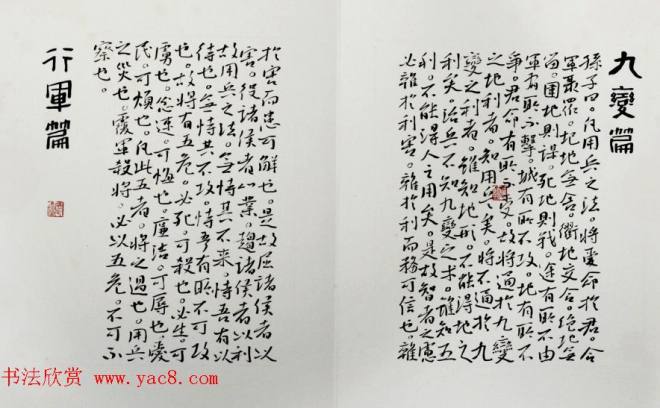 九變篇
孫子曰。凡用兵之法。將受命於君。合
軍聚眾。圮地無舍。衢地交合。絕地無
留。圍地則謀。死地則戰。途有所不由
軍有所不擊。城有所不攻。地有所不
爭。君命有所不受。故將通於九變
之地利者。知用兵矣。將不通於九
變之利者。雖知地形。不能得地之
利矣。治兵不知九變之术。雖知五
利。不能得人之用矣。是故智者之慮
必雜於利害。雜於利而務可信也。雜
於害而患可解也。是故屈諸侯者以
害。役諸侯者以業。趨諸侯者以利
故用兵之法。無恃其不來。恃吾有以
待也。無恃其不攻。恃吾有所不可攻
也。故將有五危。必死。可殺也。必生。可
虜也。忿速。可侮也。廉洁。可辱也。愛
民。可煩也。凡此五者。將之過也。用兵
之災也。覆軍殺將。必以五危。不可不
察也。
行軍篇
书法欣赏 www.yac8.com